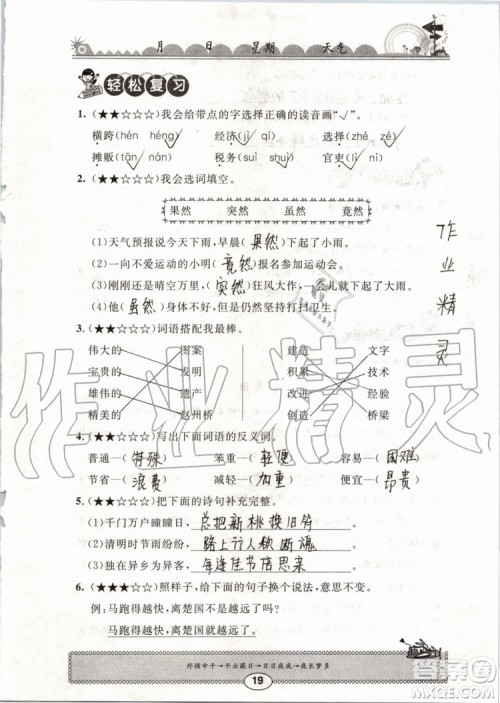 月 日 星期 天气
轻松复习
1.(★★☆☆☆)我会给带点的字选择正确的读音画“√”。
横跨(hén héng√) 经济(jì√ qí) 选择(zé√ zhé)
摊贩(tān√ nán) 税务(suì shuì√) 官吏(lì√
2.(★★☆☆☆)我会选词填空。
果然 突然 虽然 竟然
(1)天气预报说今天下雨,早晨(果然)下起了小雨。
(2)一向不爱运动的小明(竟然)报名参加运动会。
(3)刚刚还是晴空万里,(突然)狂风大作,一会儿就下起了大雨。
(4)他(虽然)身体不好,但仍然坚持打扫卫生。
3.(★★☆☆☆)词语搭配我最棒。
伟大的 图案 建造 文字
宝贵的 发明 积累 技术
雄伟的 遗产 改进 经验
精美的 赵州桥 创造 桥梁
4.(★★☆☆☆)写出下面词语的反义词。
普通—(特殊) 笨重—(轻便) 容易—(困难)
节省—(浪费) 减轻—(加重) 便宜—(昂贵)
5.(★★☆☆☆)把下面的诗句补充完整。
(1)千门万户曈曈日,总把新桃换旧符
(2)清明时节雨纷纷,路上行人欲断魂
(3)独在异乡为异客,每逢佳节倍思亲
6.(★★★☆☆)照样子,给下面的句子换个说法,意思不变。
例:马跑得越快,离楚国不是越远了吗?
马跑得越快,离楚国就越远了。
外强中干→干云蔽日→日日夜夜→夜长梦多
19
作业精灵
作业精灵
答案圈
MXQE.COM